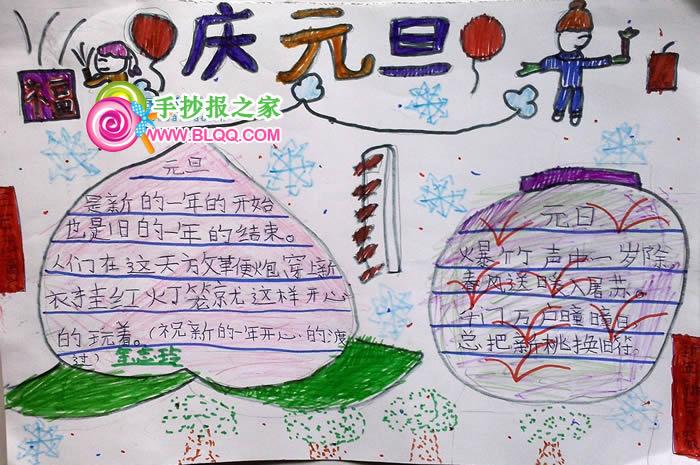 庆元旦
福
手抄报之家
WWW.BLQQ.COM
元旦
是新的一年的开始
也是旧的一年的结束。
人们在这天方攵革便炮,穿上新
衣挂红灯笼京尤这样开心
的玩着。(祝新的一年开心的渡
过)
元日
爆竹声中一岁除
春风送暖入屠苏。
千门万户曈曈日
总把新桃换旧符。